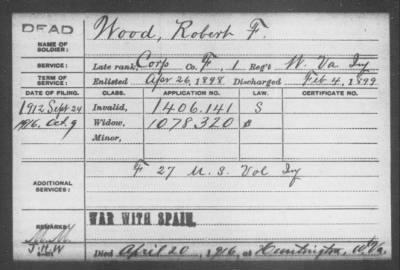 DEAD
Wood, Robert F.
NAME OF SOLDIER:
SERVICE: Late rank, Corp Co. F, 1 Reg't W. Va Iy
TERM OF SERVICE: Enlisted Apr 26, 1898 Discharged Feb 4, 1899
DATE OF FILING. CLASS. APPLICATION NO. LAW. CERTIFICATE NO.
1912 Sept 24 Invalid, 1406.141 S
1916. Oct. 9 Widow, 1078.320
Minor,
F 27 U.S. Vol Iy
ADDITIONAL SERVICES:
WAR WITH SPAIN.
REMARKS:
J.H.W
Died April 20, 1916, at Huntington, W.Va.